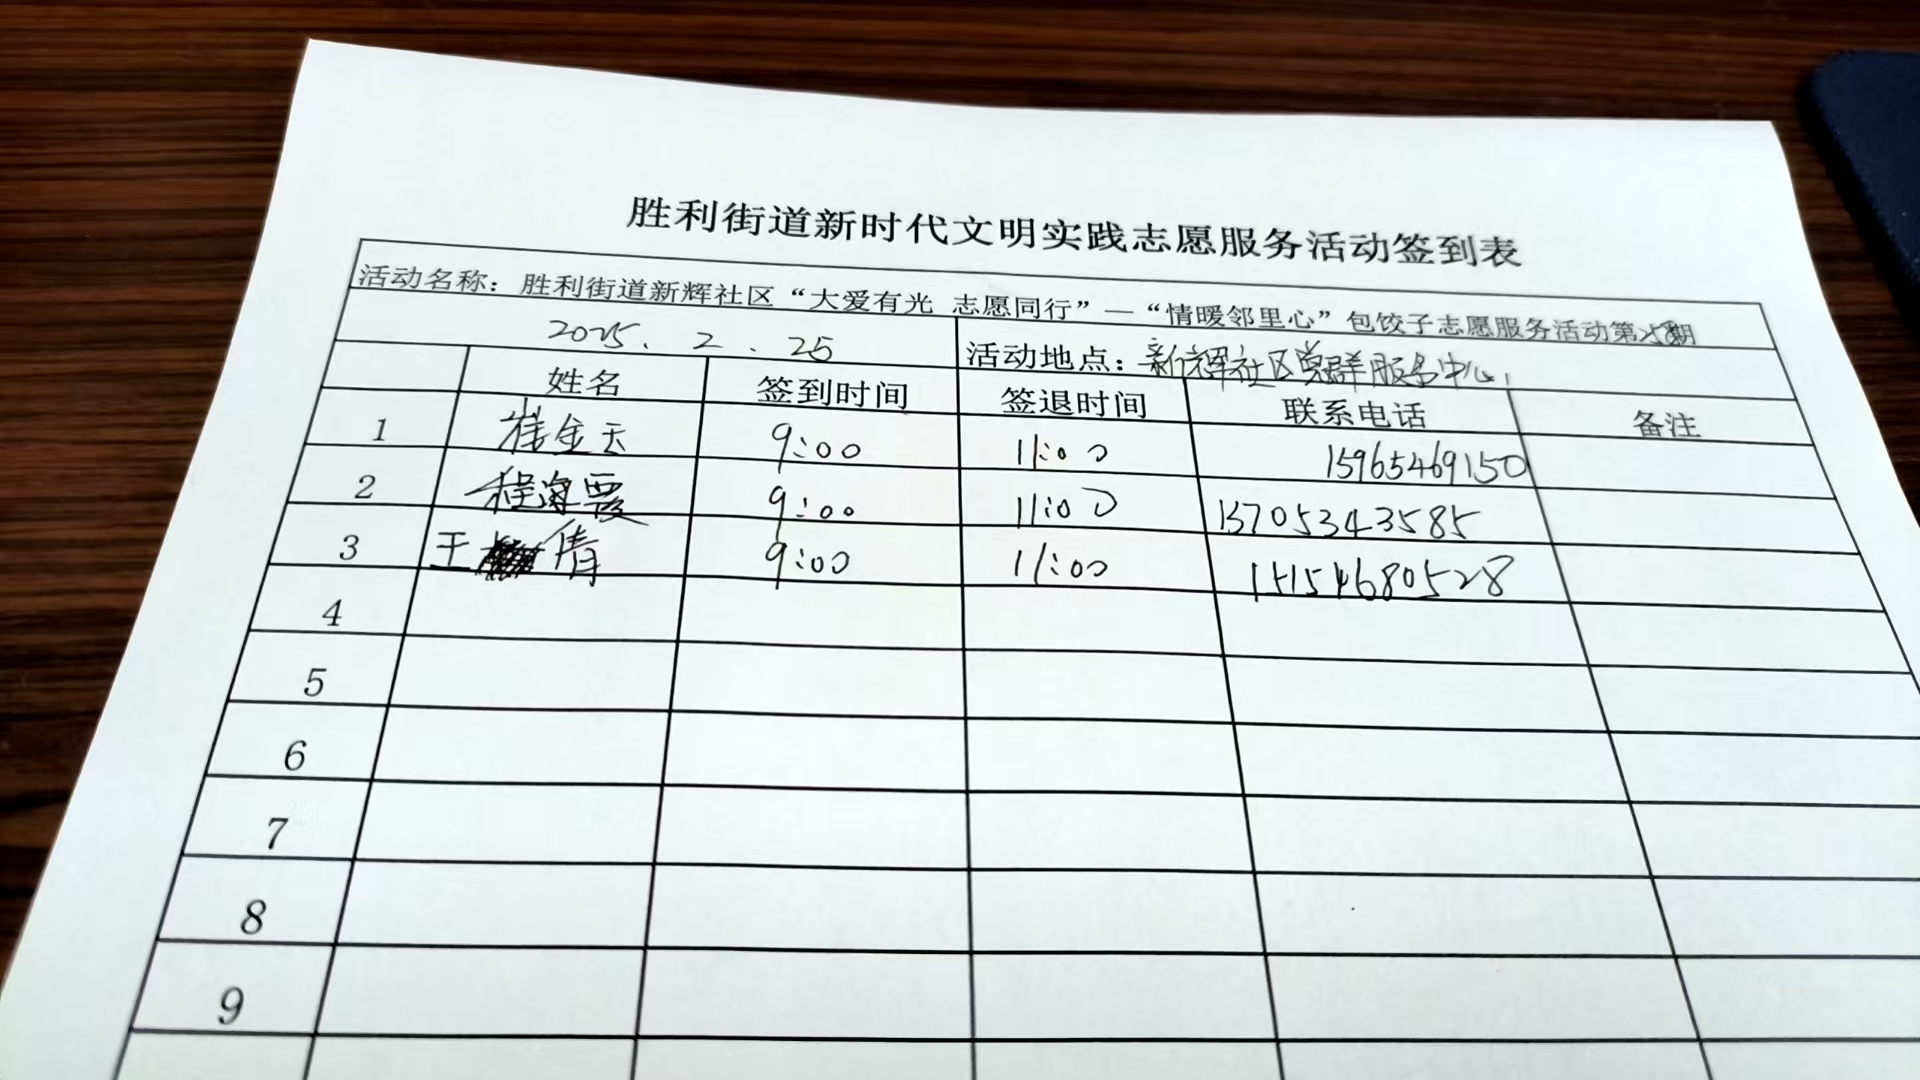 胜利街道新时代文明实践志愿服务活动签到表
活动名称：胜利街道新辉社区“大爱有光 志愿同行”—“情暖邻里心”包饺子志愿服务活动第 期
2025.2.25 活动地点：新辉社区党群服务中心
姓名 签到时间 签退时间 联系电话 备注
1 崔金天 9:00 11:00 15965469150
2 程海霞 9:00 11:00 13705343585
3 王 倩 9:00 11:00 15154680528
4
5
6
7
8
9